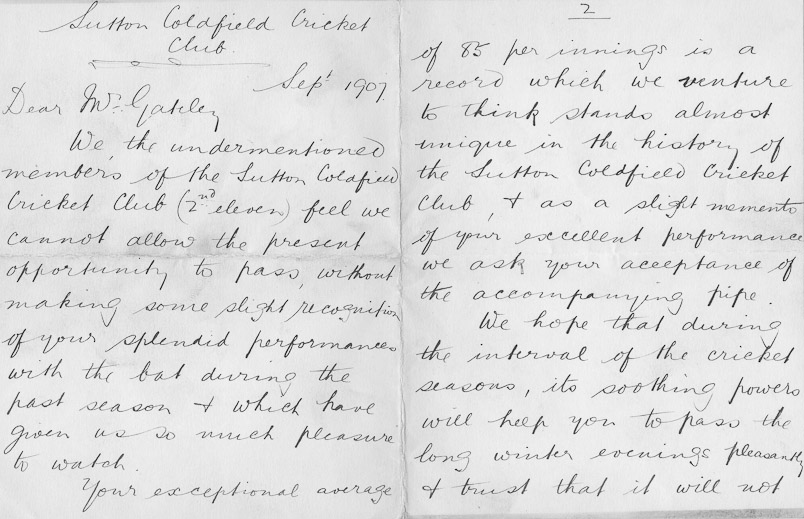 Sutton Coldfield Cricket
Club.
Sept 1907.
Dear Mr. Gateley
We, the undermentioned
members of the Sutton Coldfield
Cricket Club (2nd eleven) feel we
cannot allow the present
opportunity to pass, without
making some slight recognition
of your splendid performances
with the bat during the
past season & which have
given us so much pleasure
to watch.
Your exceptional average
2
of 85 per innings is a
record which we venture
to think stands almost
unique in the history of
the Sutton Coldfield Cricket
Club, & as a slight memento
of your excellent performance
we ask your acceptance of
the accompanying pipe.
We hope that during
the interval of the cricket
seasons, its soothing powers
will help you to pass the
long winter evenings pleasantly
& trust that it will not